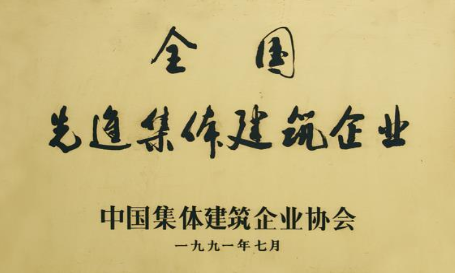 全国
先進集体建筑企业
中国集体建筑企业协会
一九九一年七月